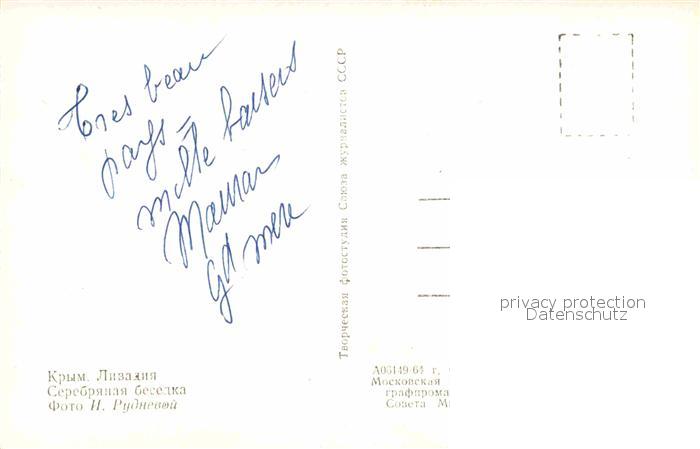 Tres beau
pays
mille baisers
Maman
gd mere
Творческая фотостудия Союза журналистов СССР
Крым. Ливадия
Серебряная беседка
Фото И. Рудневой
А03149-64 г.
Московская
графпрома
Совета М
privacy protection
Datenschutz